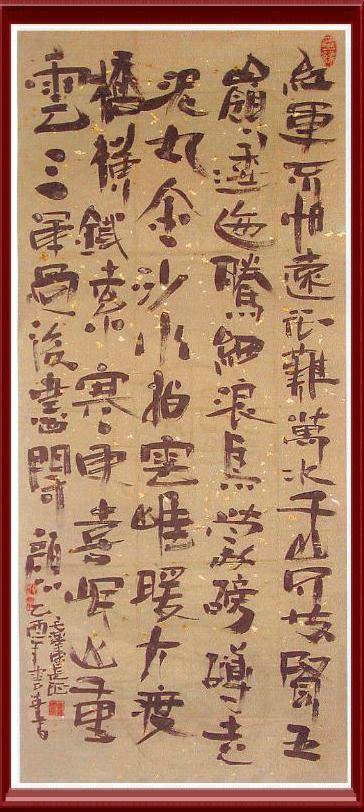 紅軍不怕遠征難萬水千山只等閒五
嶺逶迤騰細浪烏蒙磅礴走
泥丸金沙水拍雲崖暖大渡
橋橫鐵索寒更喜岷山千里
雪三軍過後盡開顏
毛澤東長征
乙酉年